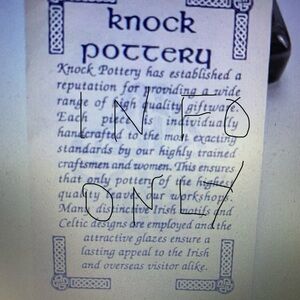 knock
pottery
Knock Pottery has established a
reputation for providing a wide
range of high quality giftware.
Each piece is individually
handcrafted to the most exacting
standards by our highly trained
craftsmen and women. This ensures
that only pottery of the highest
quality leave our workshops.
Many distinctive Irish motifs and
Celtic designs are employed and the
attractive glazes ensure a
lasting appeal to the Irish
and overseas visitor alike.
INFO
ONLY